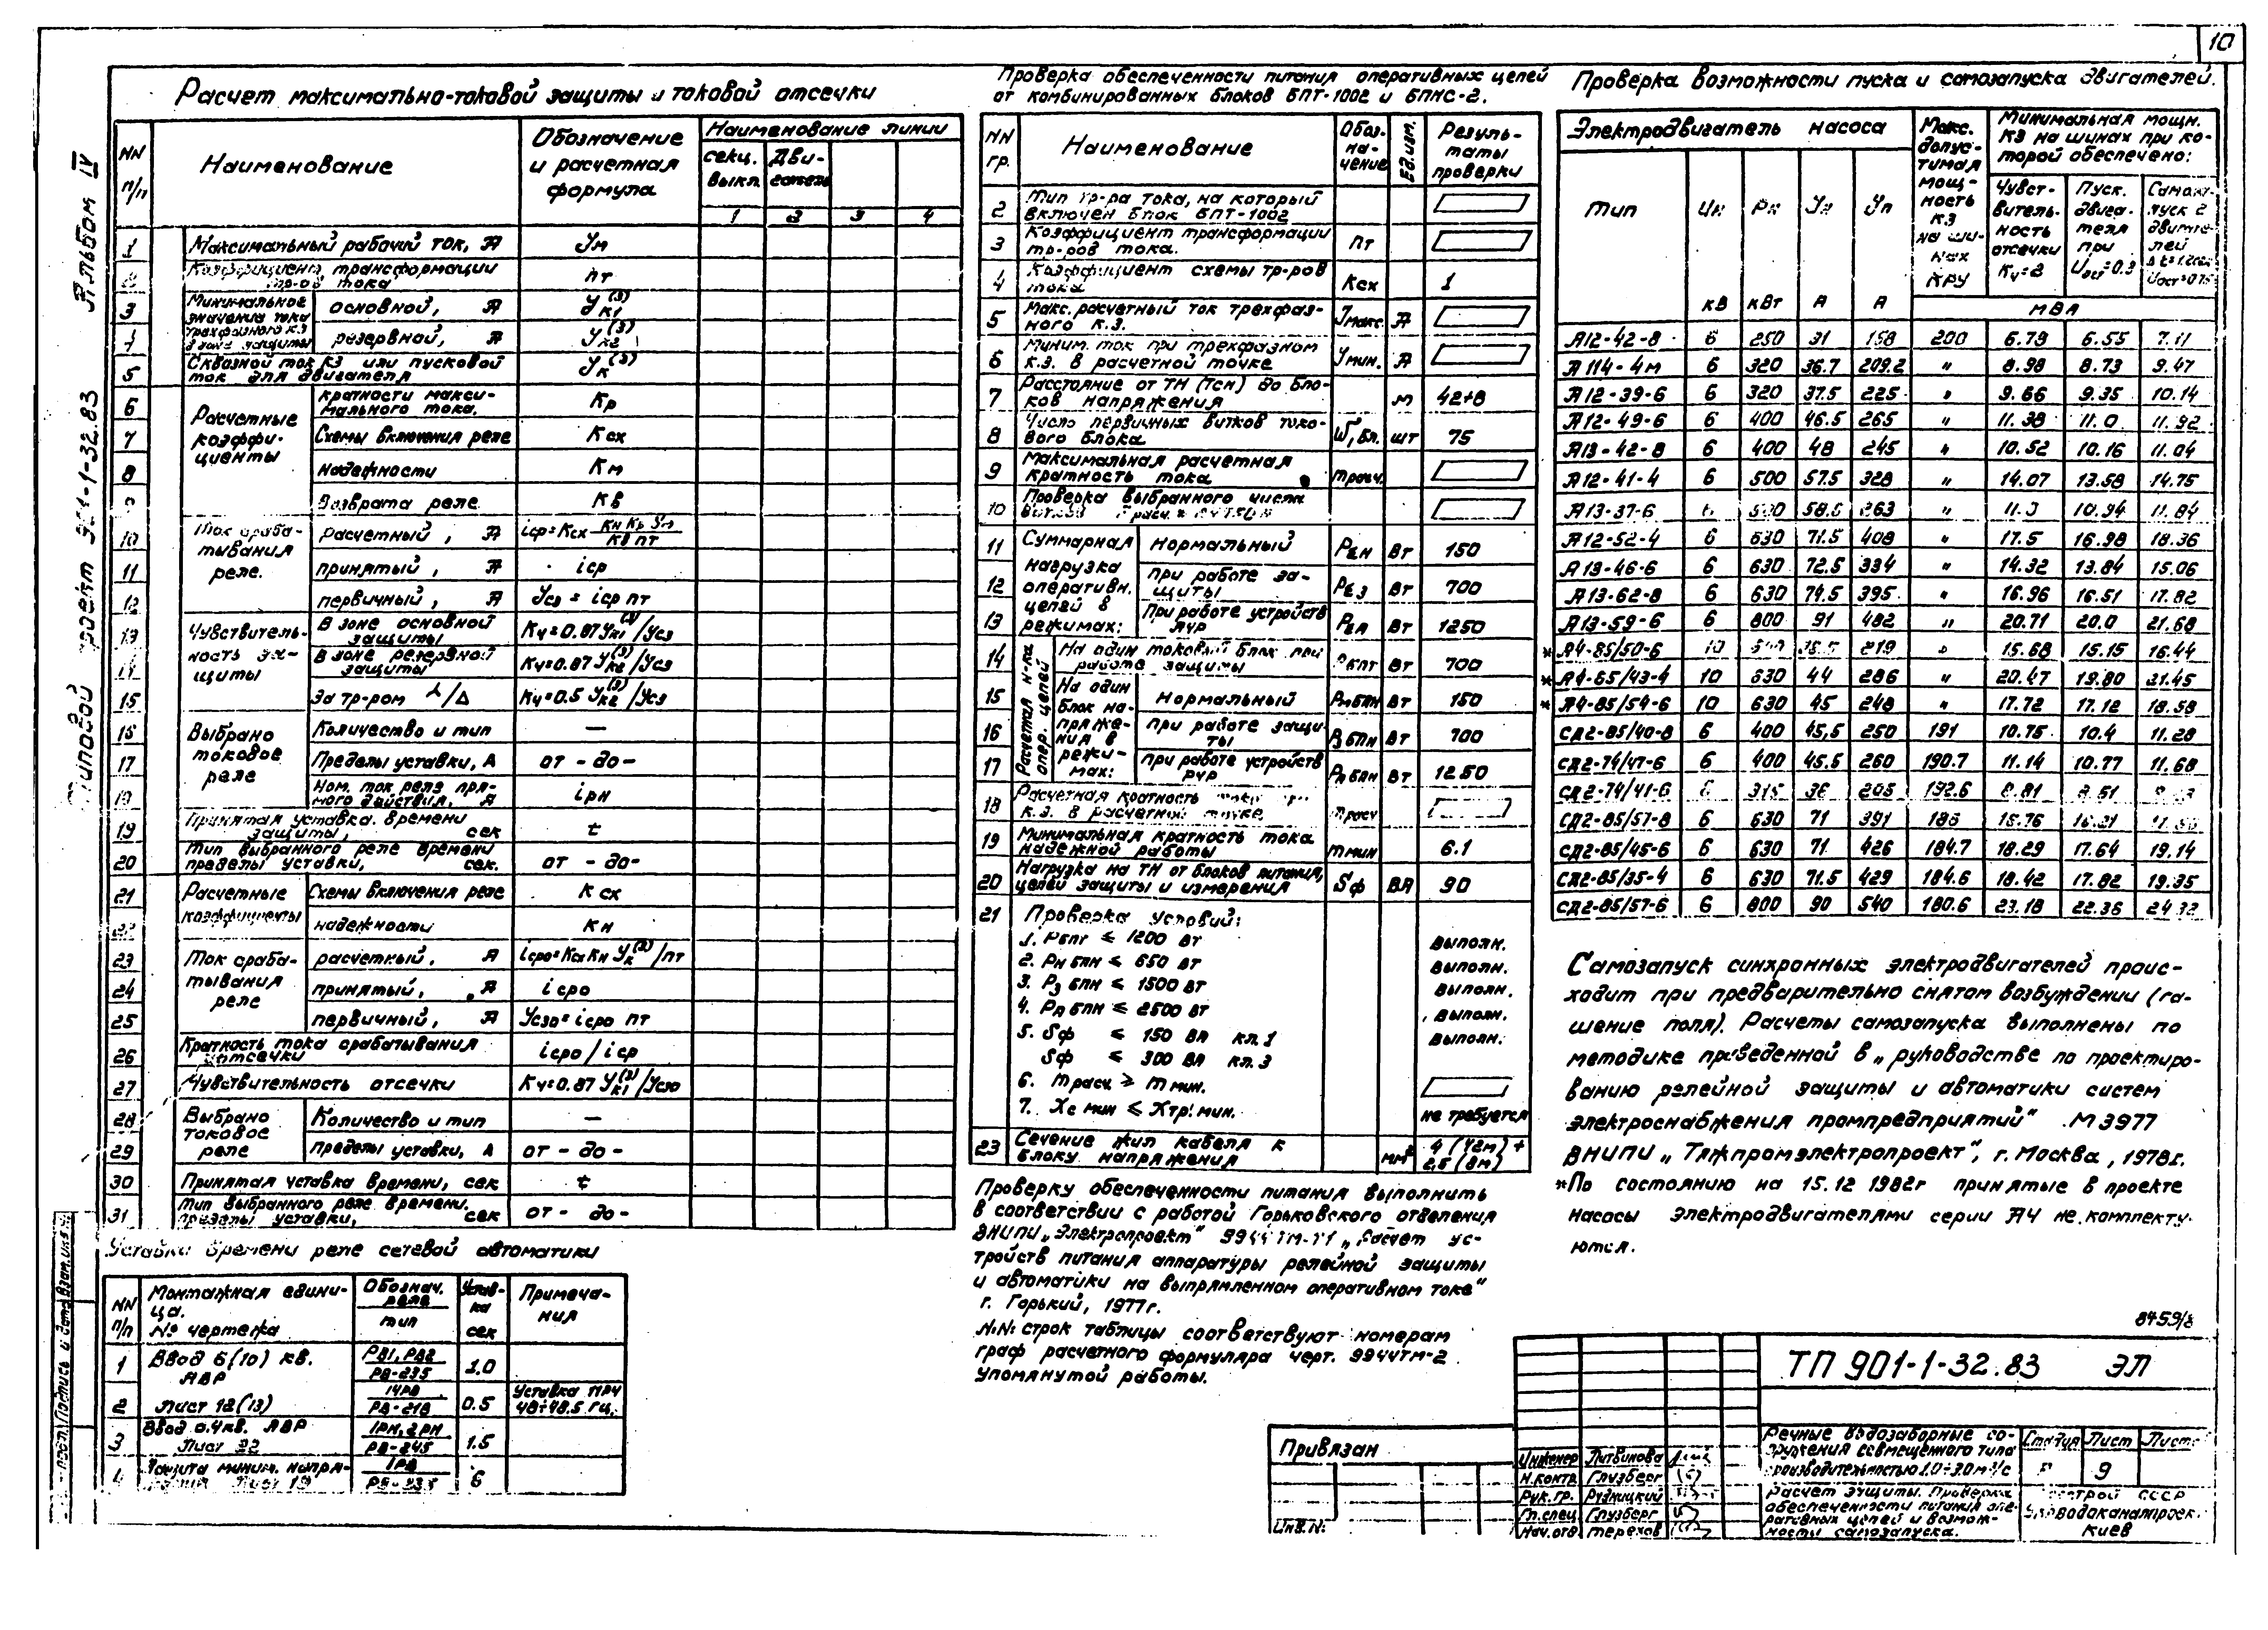 10
Альбом IV
Типовой проект 901-1-32.83
Расчет максимально-токовой защиты и токовой отсечки
NN п/п
Наименование
Обозначение и расчетная формула
Наименование линии
секц. выкл.
Двигатель
1 2 3 4
1 Максимальный рабочий ток, А Ум
Коэффициент трансформации тр-ов тока пт
Минимальное значение тока трехфазного к.з. в зоне защиты
3 основной, А У(3)к1
4 резервной, А У(3)к2
5 Сквозной ток КЗ или пусковой ток для двигателя У(3)к
Расчетные коэффициенты
6 кратности максимального тока. Кр
7 Схемы включения реле Ксх
8 надежности Км
9 Возврата реле Кв
Ток срабатывания реле.
10 расчетный, А iср=Ксх Кн Кр Ум / Кв пт
11 принятый, А iср
12 первичный, А Усз = iср пт
Чувствительность защиты
13 В зоне основной защиты Кч=0.87 У(3)к1/Усз
14 В зоне резервной защиты Кч=0.87 У(3)к2/Усз
15 За тр-ром ⅄/Δ Кч=0.5 У(3)к2/Усз
Выбрано токовое реле
16 Количество и тип —
17 Пределы уставки, А от - до-
Ном. ток реле прямого действия, А iрн
19 Принятая уставка времени защиты, сек t
20 Тип выбранного реле времени пределы уставки, сек. от - до-
Расчетные коэффициенты
21 Схемы включения реле К сх
22 надежности Кн
Ток срабатывания реле
23 расчетный, А iсро=Ксх Кн У(3)к/пт
24 принятый, А iсро
25 первичный, А Усзо=iсро пт
26 Кратность тока срабатывания отсечки iсро/iср
27 Чувствительность отсечки Кч=0.87 У(3)к1/Усзо
Выбрано токовое реле
28 Количество и тип —
29 Пределы уставки, А от - до -
30 Принятая уставка времени, сек t
31 Тип выбранного реле времени, пределы уставки, сек от - до-
Уставки времени реле сетевой автоматики
NN п/п
Монтажная единица. № чертежа
Обознач. реле тип
Уставка сек
Примечания
1 Ввод 6(10) кв. АВР РВ1, РВ2 РВ-235 1.0
2 Лист 12(13) 14РВ РВ-218 0.5 Уставка АРЧ 48÷48.5 Гц.
3 Ввод 0.4кв. АВР Лист 22 1РН, 2РН РВ-245 1.5
4 Защита миним. напряжения Лист 19 1РВ РВ-235 6
Проверка обеспеченности питания оперативных цепей
от комбинированных блоков БПТ-1002 и БПНС-2.
NN гр.
Наименование
Обозначение
Ед.изм.
Результаты проверки
2 Тип тр-ра тока, на который включен блок БПТ-1002
3 Коэффициент трансформации тр-ров тока. пт
4 Коэффициент схемы тр-ров тока Ксх 1
5 Макс. расчетный ток трехфазного к.з. Умакс. А
6 Миним. ток при трехфазном к.з. в расчетной точке Умин. А
7 Расстояние от ТН (Тсн) до блоков напряжения м 42+8
8 Число первичных витков токового блока W1бл. шт 75
9 Максимальная расчетная кратность тока mрасч.
10 Проверка выбранного числа витков
Суммарная нагрузка оперативн. цепей в режимах:
11 нормальный РΣн Вт 150
12 при работе защиты РΣз Вт 700
13 При работе устройств АЧР РΣА Вт 1250
Расчетная н-ка опер. цепей
14 На один токовый блок при работе защиты Рбпт Вт 700
На один блок напряжения в режимах:
15 Нормальный Рнбпн Вт 150
16 при работе защиты Рзбпн Вт 700
17 при работе устройств РЧР РАбпн Вт 1250
18 Расчетная кратность тока при к.з. в расчетной точке mрасч
19 Минимальная кратность тока надежной работы mмин 6.1
20 Нагрузка на ТН от блоков питания, цепей защиты и измерения Sф ВА 90
21 Проверка условий:
1. Рбпт ≤ 1200 вт выполн.
2. Рн бпн ≤ 650 вт выполн.
3. Рз бпн ≤ 1500 вт выполн.
4. РА бпн ≤ 2500 вт выполн.
5. Sф ≤ 150 ВА кл.1 выполн.
Sф ≤ 300 ВА кл.3
6. mрасч ≥ mмин.
7. Хс мин ≤ Хтр. мин. не требуется
23 Сечение жил кабеля к блоку напряжения мм² 4 (42м) + 2,5 (8м)
Проверку обеспеченности питания выполнить
в соответствии с работой Горьковского отделения
ВНИПИ „Электропроект" 9944ТМ-Т1 „Расчет ус-
тройств питания аппаратуры релейной защиты
и автоматики на выпрямленном оперативном токе"
г. Горький, 1977г.
N.N: строк таблицы соответствуют номерам
граф расчетного формуляра черт. 9944ТМ-2
Упомянутой работы.
Проверка возможности пуска и самозапуска двигателей.
Электродвигатель насоса
Макс. допустимая мощность КЗ на шинах КРУ
Минимальная мощн. КЗ на шинах при которой обеспечено:
Тип Uн Рн Ун Уп
Чувствительность отсечки Кч=2
Пуск. двигателя при
Самозапуск 2 двигателей
кв кВт А А МВА
А12-42-8 6 250 31 158 200 6.79 6.55 7.11
А114-4м 6 320 36.7 209.2 „ 8.98 8.73 9.47
А12-39-6 6 320 37.5 225 „ 9.66 9.35 10.14
А12-49-6 6 400 46.5 265 „ 11.38 11.0 11.92
А13-42-8 6 400 48 245 „ 10.52 10.16 11.04
А12-41-4 6 500 57.5 328 „ 14.07 13.58 14.75
А13-37-6 6 500 58.5 263 „ 11.3 10.94 11.84
А12-52-4 6 630 71.5 408 „ 17.5 16.98 18.36
А13-46-6 6 630 72.5 334 „ 14.32 13.84 15.06
А13-62-8 6 630 74.5 395 „ 16.96 16.51 17.82
А13-59-6 6 800 91 482 „ 20.71 20.0 21.68
*А4-85/50-6 10 500 219 „ 15.68 15.15 16.44
*А4-85/43-4 10 630 44 286 „ 20.47 19.80 21.45
*А4-85/54-6 10 630 45 248 „ 17.72 17.12 18.58
СД2-85/40-8 6 400 45,5 250 191 10.75 10.4 11.28
СД2-74/47-6 6 400 45.5 260 190.7 11.14 10.77 11.68
СД2-74/41-6 6 315 36 205 192.6 8.81 8.51
СД2-85/57-8 6 630 71 391 186
СД2-85/45-6 6 630 71 426 184.7 18.29 17.64 19.14
СД2-85/35-4 6 630 71.5 429 184.6 18.42 17.82 19.35
СД2-85/57-6 6 800 90 540 180.6 23.18 22.36 24.32
Самозапуск синхронных электродвигателей проис-
ходит при предварительно снятом возбуждении (га-
шение поля). Расчеты самозапуска выполнены по
методике приведенной в „руководстве по проектиро-
ванию релейной защиты и автоматики систем
электроснабжения промпредприятий" М3977
ВНИПИ „Тяжпромэлектропроект", г. Москва, 1978г.
*По состоянию на 15.12 1982г принятые в проекте
насосы электродвигателями серии А4 не комплекту-
ются.
8459/8
ТП 901-1-32.83 ЭЛ
Привязан
Инв.N:
Инженер Литвинова
Н.контр. Глузберг
Рук.гр. Рудницкий
Гл.спец. Глузберг
Нач.отд. Терехов
Речные водозаборные со-
оружения совмещенного типа
производительностью 1.0÷3.0 м³/с
Стадия Лист Листов
Р 9
Расчет защиты. Проверка
обеспеченности питания опе-
ративных цепей и возмож-
ности самозапуска.
Госстрой СССР
Укрводоканалпроект
Киев
Подпись и дата Взам.инв.N